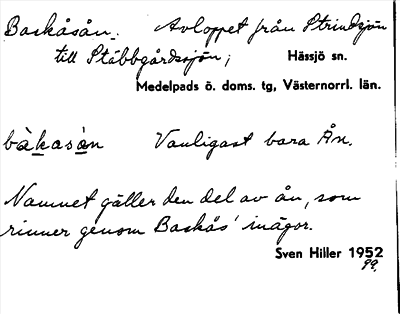 Baskåsån. Avloppet från Strindsjön
till Stöbbgårdssjön; Hässjö sn.
Medelpads ö. doms. tg, Västernorrl. län.
bàkasàn Vanligast bara Ån.
Namnet gäller den del av ån, som
rinner genom Baskås' inägor.
Sven Hiller 1952
99.